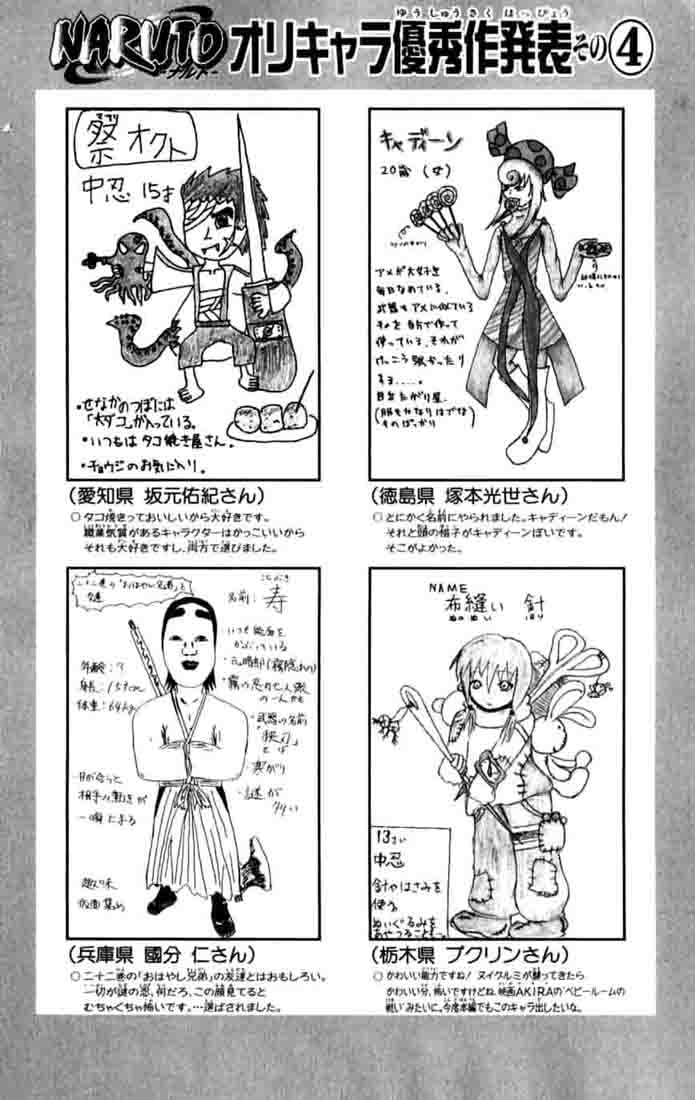 ゆうしゅうさくはっぴょう
NARUTO
ーナルトー
オリキャラ優秀作発表その④
祭オクト
中忍 15才
・せなかのつぼには
「大ダコ」が入っている。
・いつもはタコ焼き屋さん。
・チョウジのお気に入り。
(愛知県 坂元佑紀さん)
○タコ焼きっておいしいから大好きです。
職業気質があるキャラクターはかっこいいから
それも大好きですし、両方で選びました。
キャディーン
20歳 (女)
アメが大好きで
毎日なめている。
武器もアメに似ている
ものを自分で作って
使っている。それが
けっこう強かったり
する……。
目立ちたがり屋。
(服もかなりはでな
ものばっかり)
(徳島県 塚本光世さん)
○とにかく名前にやられました。キャディーンだもん!
それと頭の帽子がキャディーンぽいです。
そこがよかった。
二十二巻の「おはやし兄弟」と
友達
名前：寿
ことぶき
・いつも能面を
かぶっている
・元暗部(霧隠れ)
・霧の忍刀七人衆
の一人かも
・武器の名前
・寒がり
・謎が
多い
年齢：?
身長：
体重：64kg
・目が合うと
相手の動きが
一瞬止まる
趣味
仮面集め
(兵庫県 國分 仁さん)
○二十二巻の「おはやし兄弟」の友達とはおもしろい。
一切が謎の忍、何だろ、この顔見てると
むちゃくちゃ怖いです。…選ばされました。
NAME
布縫い 針
ぬのぬい はり
13さい
中忍
針やはさみを
使う。
ぬいぐるみを
あやつることも〜。
(栃木県 プクリンさん)
○かわいい能力ですね! ヌイグルミが襲ってきたら
かわいい分、怖いですけどね。映画AKIRAの"ベビールームの
戦い"みたいに。今度本編でもこのキャラ出したいな。